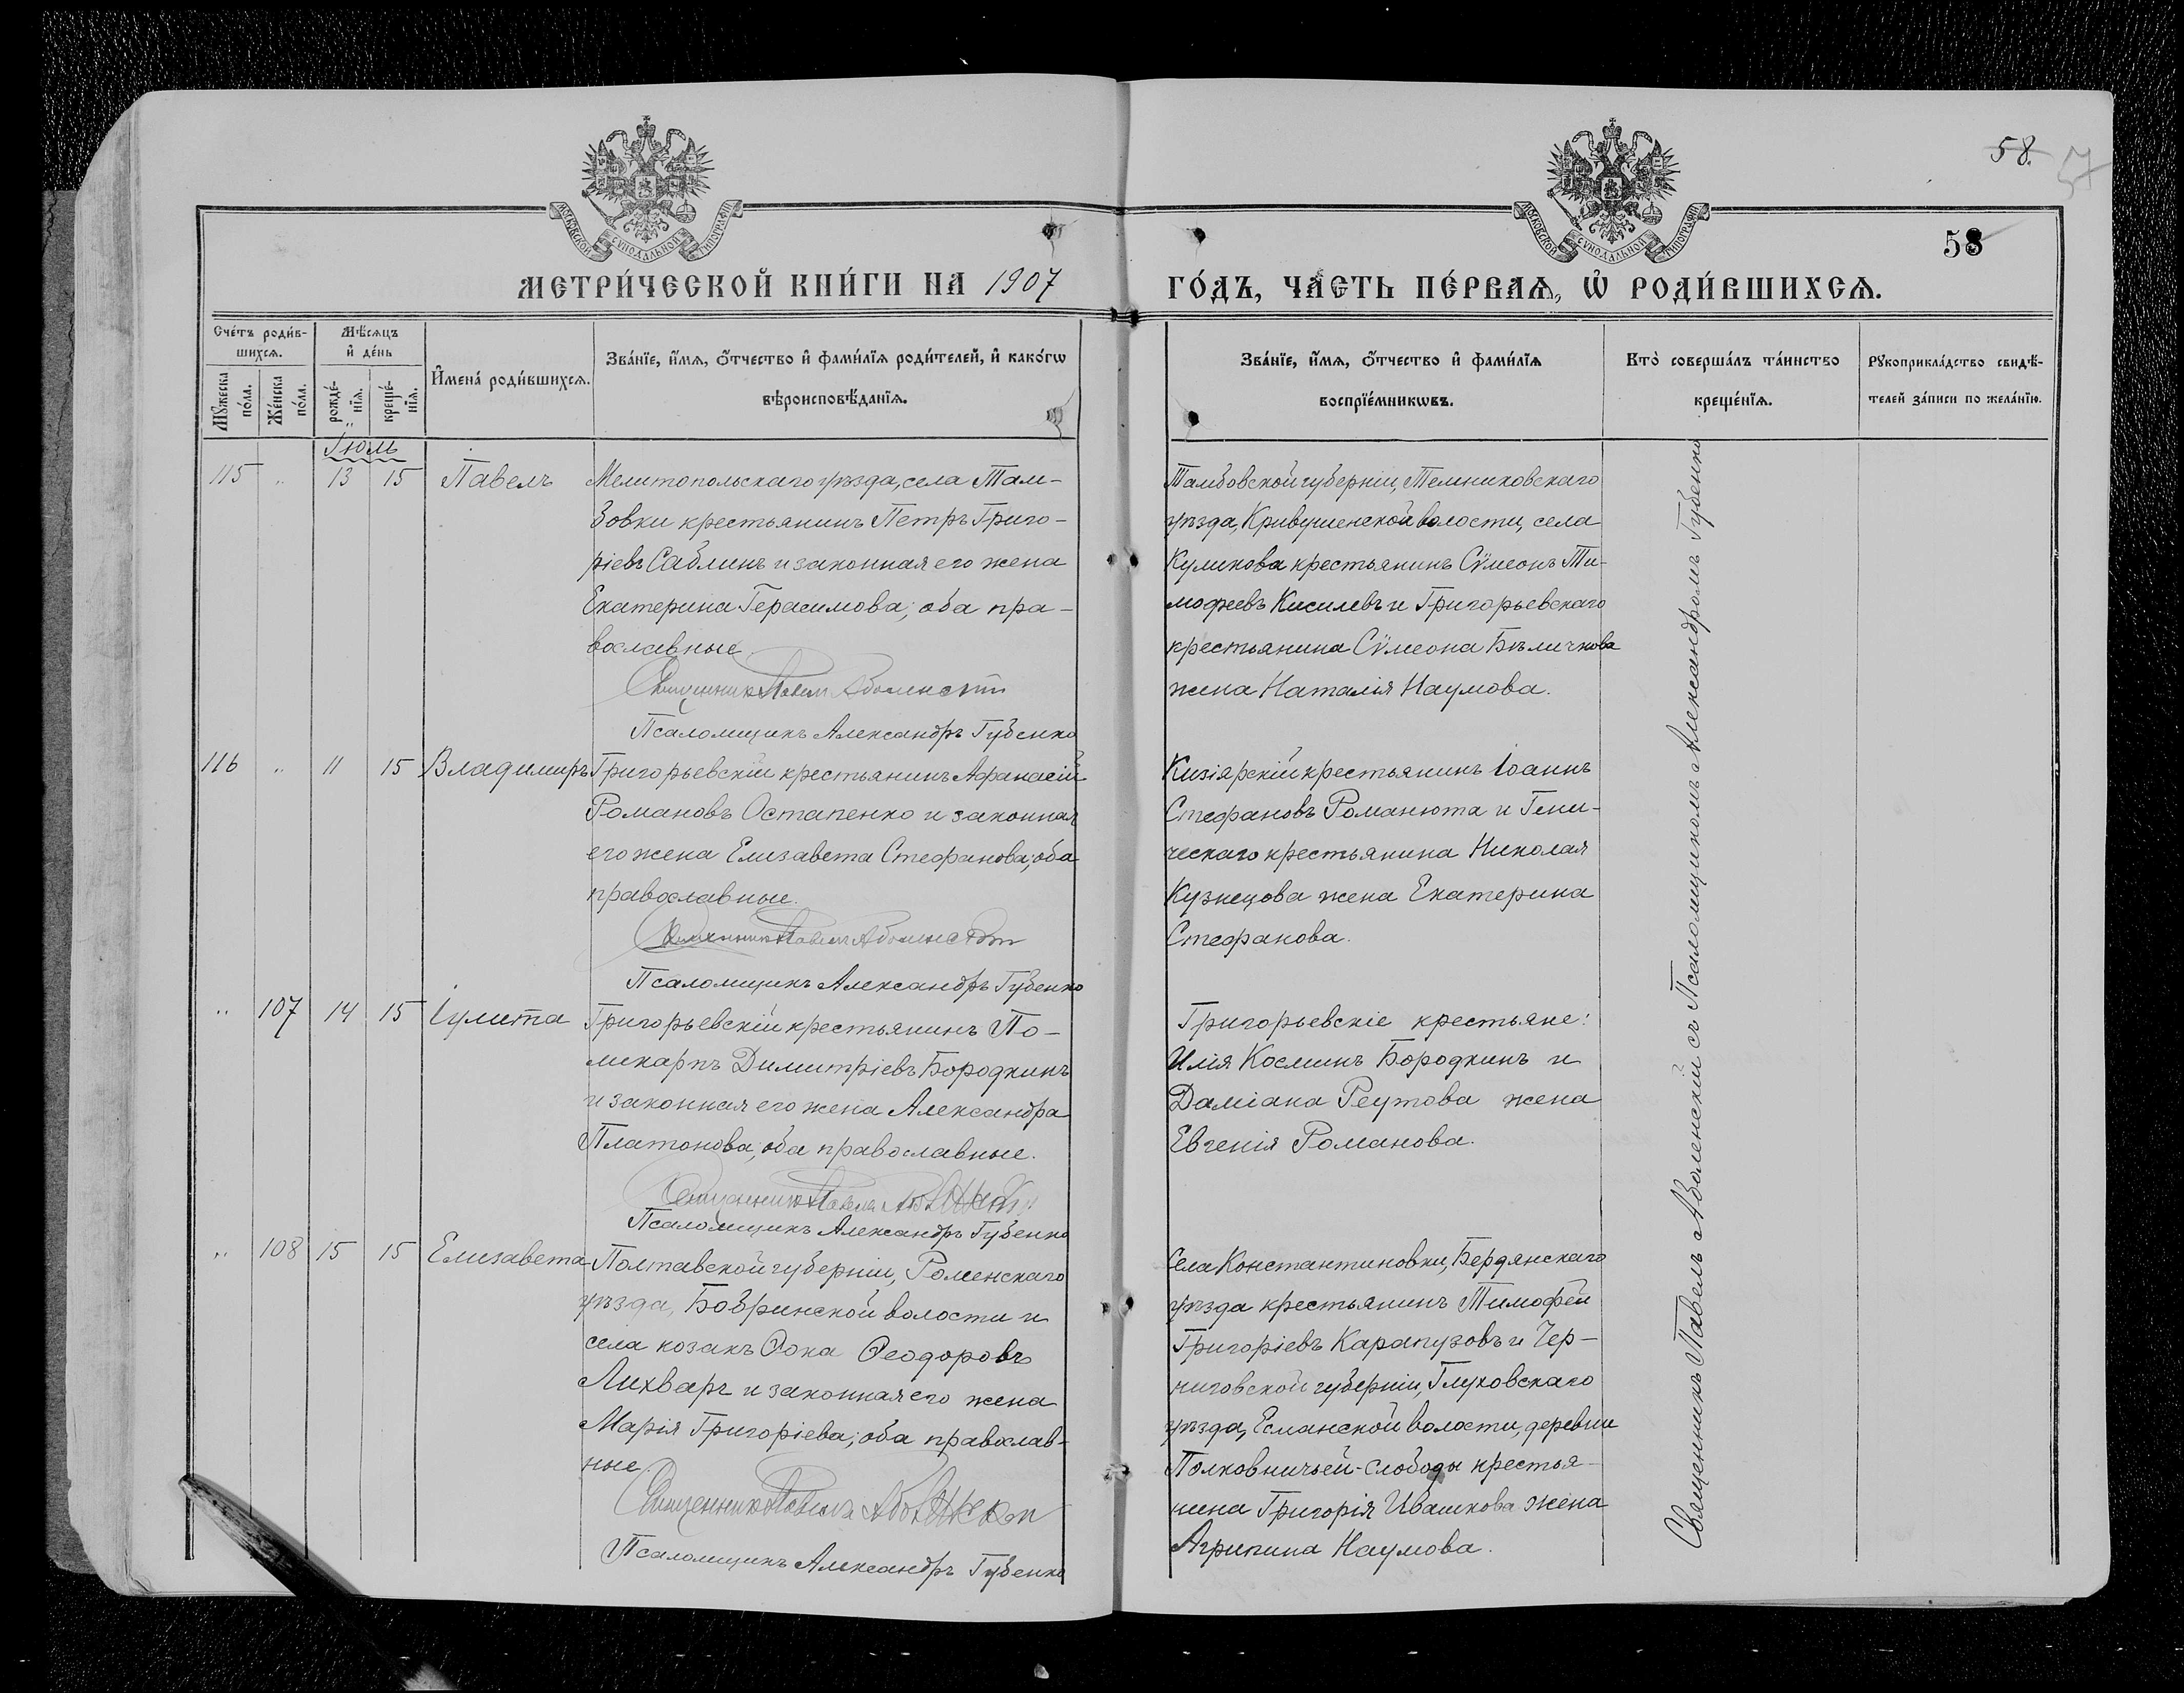 58. 57
МОСКОВСКОЙ СѴНОДАЛЬНОЙ ТИПОГРАФІИ
МОСКОВСКОЙ СѴНОДАЛЬНОЙ ТИПОГРАФІИ
58
МЕТРИ́ЧЕСКОЙ КНИ́ГИ НА 1907
ГО́ДЪ, ЧА́СТЬ ПЕ́РВАѦ, Ѡ҆ РОДИ́ВШИХСѦ.
Сче́тъ роди́в-
шихсѧ.
Мꙋ́жеска по́ла.
Же́нска по́ла.
Мѣ́сѧцъ
и҆ де́нь
рожде́-
нїѧ.
креще́-
нїѧ.
И҆мена́ роди́вшихсѧ.
Зва́нїе, и҆́мѧ, ѻ҆́тчество и҆ фами́лїѧ роди́телей, и҆ како́гѡ
вѣроисповѣ́данїѧ.
Зва́нїе, и҆́мѧ, ѻ҆́тчество и҆ фами́лїѧ
воспрїе́мникѡвъ.
Кто̀ соверша́лъ та́инство
креще́нїѧ.
Рꙋкоприкла́дство свидѣ́-
телей за́писи по жела́нїю.
Іюль
115 " 13 15 Павелъ
Мелитопольскаго уѣзда, села Там-
бовки крестьянинъ Петръ Григо-
ріевъ Саблинъ и законная его жена
Екатерина Герасимова; оба пра-
вославные.
Священникъ Павелъ Аболенскій
Псаломщикъ Александръ Губенко
Тамбовской губерніи, Темниковскаго
уѣзда, Кривушенской волости, села
Куликова крестьянинъ Сѵмеонъ Ти-
мофеевъ Кисилевъ и Григорьевскаго
крестьянина Сѵмеона Бѣличкова
жена Наталія Наумова.
116 " 11 15 Владимиръ
Григорьевскій крестьянинъ Афанасій
Романовъ Остапенко и законная
его жена Елизавета Стефанова; оба
православные.
Священникъ Павелъ Аболенскій
Псаломщикъ Александръ Губенко
Кизіярскій крестьянинъ Іоаннъ
Стефановъ Романюта и Гени-
ческаго крестьянина Николая
Кузнецова жена Екатерина
Стефанова.
" 107 14 15 Іулитта
Григорьевскій крестьянинъ По-
ликарпъ Димитріевъ Бородкинъ
и законная его жена Александра
Платонова; оба православные.
Священникъ Павелъ Аболенскій
Псаломщикъ Александръ Губенко
Григорьевскіе крестьяне:
Илія Косминъ Бородкинъ и
Даміана Реутова жена
Евгенія Романова.
" 108 15 15 Елизавета
Полтавской губерніи, Роменскаго
уѣзда, Бобринской волости и
села козакъ Ѳока Ѳеодоровъ
Лихваръ и законная его жена
Марія Григоріева; оба православ-
ные.
Священникъ Павелъ Аболенскій
Псаломщикъ Александръ Губенко
Села Константиновки, Бердянскаго
уѣзда крестьянинъ Тимофей
Григоріевъ Карапузовъ и Чер-
ниговской губерніи, Глуховскаго
уѣзда, Есманской волости, деревни
Полковничьей-слободы крестья-
нина Григорія Ивашкова жена
Агрипина Наумова.
Священникъ Павелъ Аболенскій съ Псаломщикомъ Александромъ Губенко